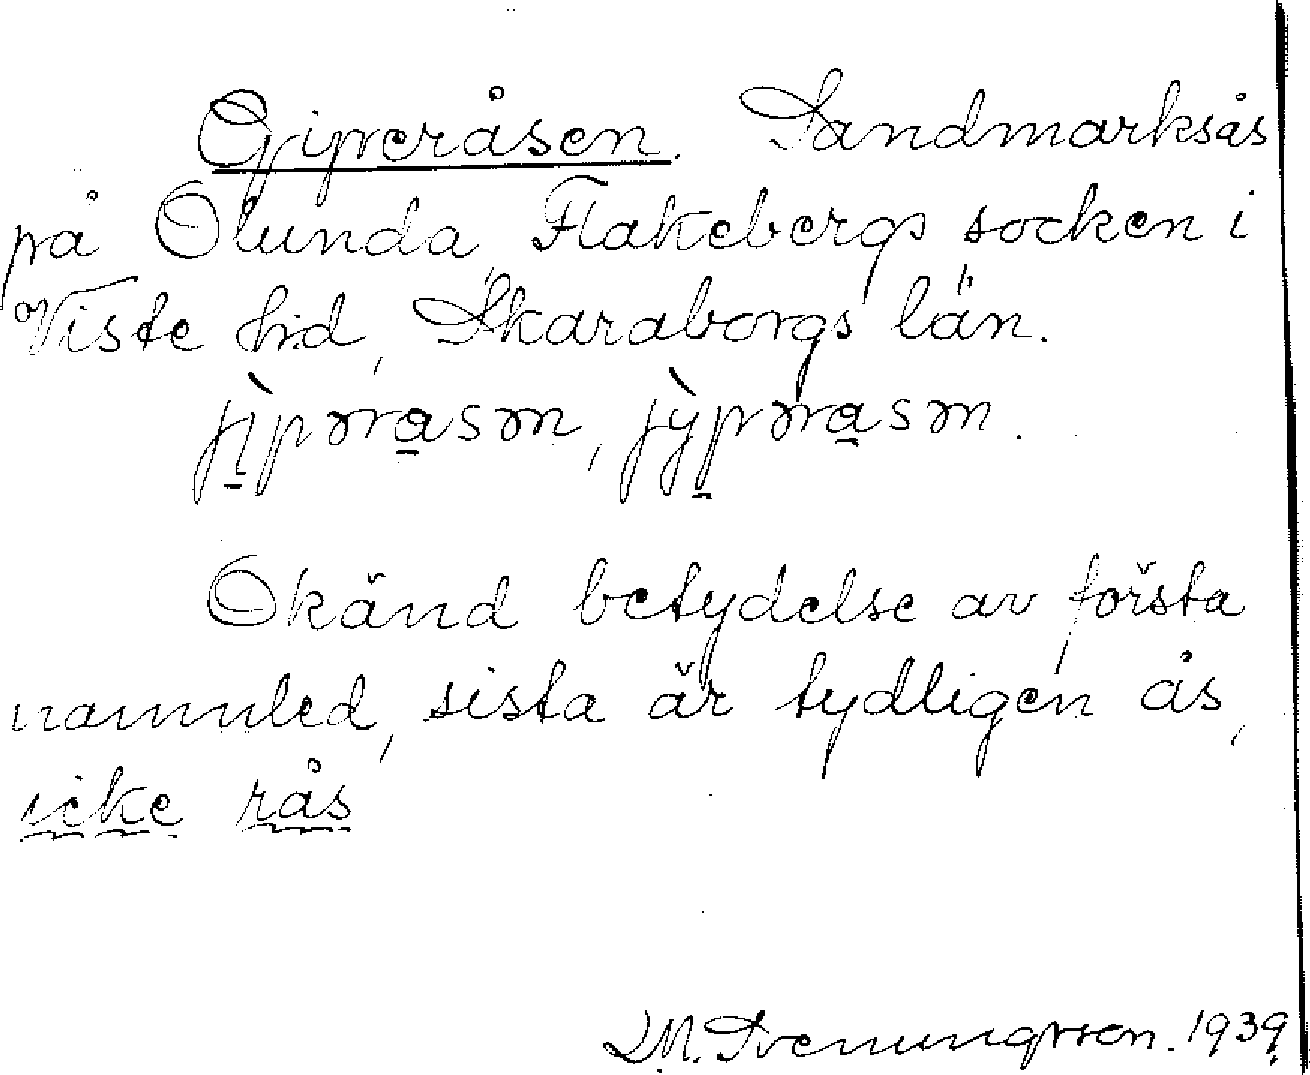 Gjiperåsen. Sandmarksås
på Ölunda, Flakebergs socken i
Viste hd, Skaraborgs län.
Okänd betydelse av första
namnled, sista är tydligen ås,
icke rås
M. Svenungsson. 1939